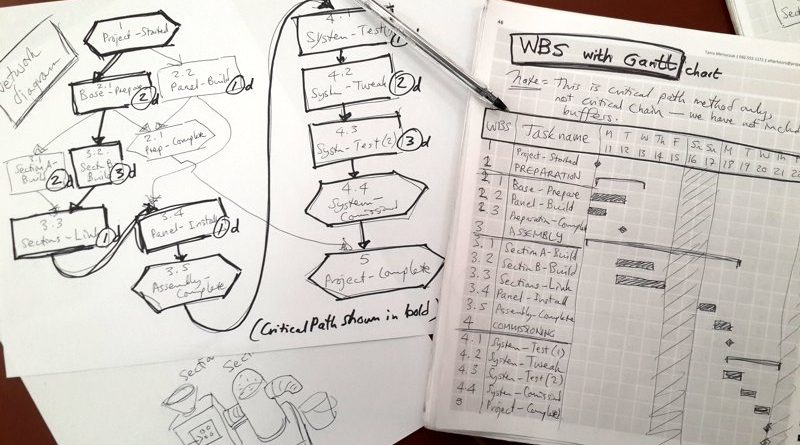 Network diagram
1
Project-Started
2.1
Base-Prepare
2d
2.2
Panel-Build
1d
2.1
Prep-Complete
3.1
Section A-Build
2d
3.2
Section B-Build
3d
3.3
Sections-Link
1d
3.4
Panel-Install
1d
3.5
Assembly-Complete
4.1
System-Test
1
4.2
System-Tweak
2
4.3
System-Test(2)
3
4.4
System-Comissind
5
Project-Complete
(Critical Path shown in bold)
WBS with Gantt chart
Note= This is critical path method only,
not critical Chain — we have not included
buffers.
WBS Task name M T W Th F Sa Su M T W Th
11 12 13 14 15 16 17 18 19 20 21
1 Project-Started
2 PREPARATION
2.1 Base-Prepare
2.2 Panel-Build
2.3 Preparation-Complete
3 ASSEMBLY
3.1 Section A-Build
3.2 Section B-Build
3.3 Sections-Link
3.4 Panel-Install
3.5 Assembly-Complete
4 COMMISSIONING
4.1 System-Test(1)
4.2 System-Tweak
4.3 System-Test(2)
4.4 System-Comissind
5 Project-Complete